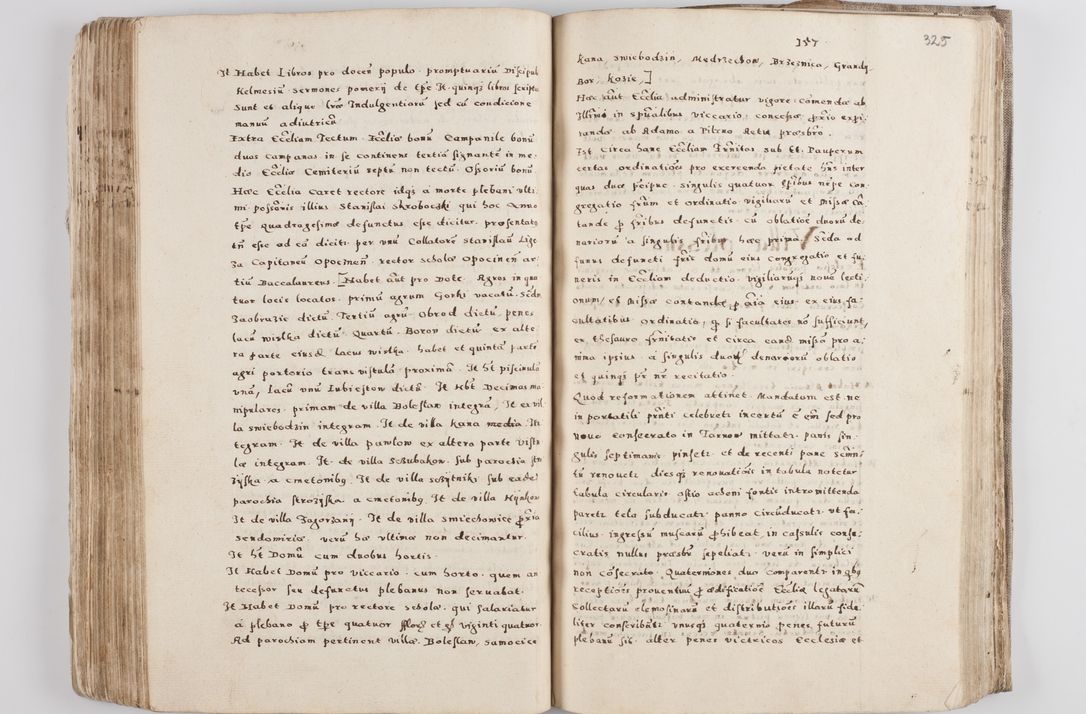 It Habet Libros pro docen̄ populo promptuariū Discipuli
Kelmesiū sermones pomerij de tp̄e It quinq₃ libros scriptos
Sunt et aliquę lr̄ę Indulgentiarū sed cū condicione
manuū adiutricū
Extra Ecc̄liam Tectum Ecc̄lię bonū Campanile bonū
duas campanas in se continens tertiā signantē in me-
dio Ecc̄lię Cemiteriū septū non tectū. Osoriū bonū.
Hæc Ecc̄lia Caret rectore idq₃ a morte plebani vlti-
mi possoris illius Stanislai Skroboczki qui hoc Anno
tp̄e quadragesimę defunctus esse dicitur. præsentatꝯ
tn̄ esse ad eā dicitr per vnū Collatorē Stanislaū Lige-
za Capitaneū Opoczneñ. rector scholæ Opocineñ ar-
tiū Baccalaureus. [Habet aūt pro Dote Agros in qua-
tuor locis locatos. primū agrum Gorki vocatū. Secūdū
Zaobruzie dictū. Tertiū agrū Obrod dictū, penes
lacū wislka dictū. Quartū. Borow dictū ex alte-
ra parte eiusdē lacus wislka. habet et quintā partē
agri portorio trans vistulā proximā. It hēt piscinulā
vnā, lacū vnū Lubieston dictū. It Hēt Decimas ma-
nipulares. primam de villa Boleslaw integrā. It ex vil-
la swiebodzin integram. It de villa Kana media. Ite
tegram. It de villa pawlow ex altera parte vistu-
læ integram. It de villa sczubakow. sub parochia str
żijska a cmetonibꝯ. It de villa sczijtniki sub eadē
parochia strożijska a cmetonibꝯ. It de villa Kijakow
It de villa Zagorzanij. It de villa smiechowice ꝓpria
sendomiriæ. verū hæ vltimæ non decimantur.
It hēt Domū cum duobus hortis.
It Habet Domū pro viccario cum horto quem an-
tecessor seu defunctus plebanus non seruabat.
It Habet Domū pro rectore scholæ. qui salariatur
à plebano ꝓ tp̄e quatuor flor₃ et gr viginti quatuor
Ad parochiam pertinent Villæ Boleslaw, samocice
157
325
Kana, swiebodzin, Medrzechow, Brzeznica, Grandij
Bor, Kozie,]
Hæc aūt Ecc̄lia administratur vigore comendæ ab
Ill̄mo in spūalibus viccario concessæ ꝓximo expi-
randæ ab Adamo a Pilzno Aetis præsb̄ro.
Est circa hanc Ecc̄liam Trinitas sub et Pauperum
certas ordinatiōes pro exercenda pietate hn̄s inter
quas duæ p̄cipuæ singulis quatuor tp̄ribus nempe con-
gregatio frūm et ordinatio vigiliarū et missæ cā-
tandæ ꝓ fribus defunctis cū oblatiōe duorū de-
nariorū a singulis fribus hæc prima. Sēda ad
funus defuncti fris domū eius congregatio et fu-
neris in Ecc̄liam deductio vigiliarūq₃ nouē lecti-
onum, et Missæ cantandæ ꝓ aīa eius ex eius fa-
cultatibus ordinatio, qs si facultates nō sufficiunt,
ex thesauro frnitatis et circa eandē missā pro a-
nima ipsius a singulis duorū denariorū oblatio
et quinq₃ pr̄ nr̄ recitatio.
Quod reformationem attinet. Mandatum est ne
in portatili prn̄ti celebretr incertū ē em̄ sed pro
nouo consecrato in Tarnow mittatr. panis sin-
gulis septimanis pinsetr. et de recenti pane Sc̄mn-
tū renouetr diesq₃ renouatiōis in tabula notetur
tabula circularis ostio achoni fontis intromittenda
parietr tela subducatr panno circūducatr vt fa-
cilius ingressū muscarū ꝓhibeat, in casulis conse-
cratis nullus præsbr sepeliatr verū in simplici
non cōsecrato. Quaterniones duo comparentr in qbꝯ
receptiōes prouentuū ꝓ ædificatiōe Ecc̄liæ legatarū
Collectarū elemosinarū et distributiōes illarū fide-
liter conscribātr vnusq₃ quaternio penes futurū
plebanū sit alter penes victricos Ecclesiæ et